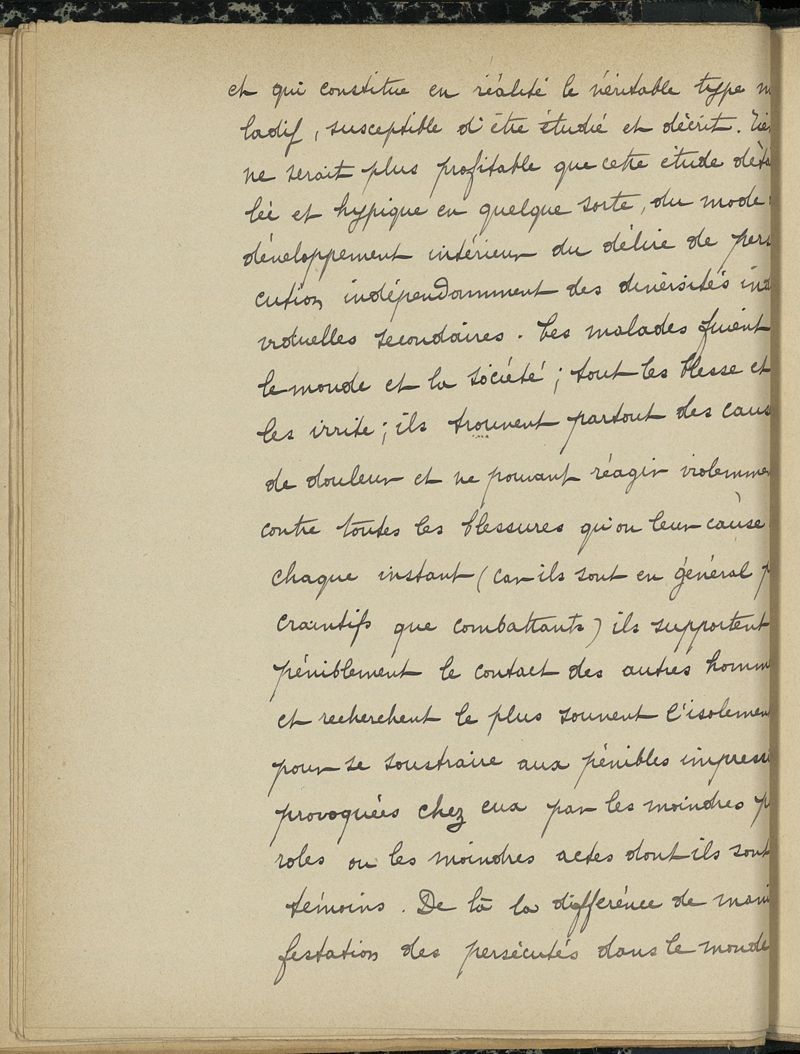 et qui constitue en réalité le véritable type m
ladif, susceptible d'être étudié et décrit. Rie
ne serait plus profitable que cette étude déta
lée et hypique en quelque sorte, du mode
développement intérieur du délire de pers
cution indépendamment des diversités ind
viduelles secondaires. Les malades fuient
le monde et la société ; tout les blesse et
les irrite ; ils trouvent partout des caus
de douleur et ne pouvant réagir violemme
contre toutes les blessures qu'on leur cause
chaque instant (car ils sont en général p
craintifs que combattants) ils supportent
péniblement le contact des autres homm
et recherchent le plus souvent l'isolemen
pour se soustraire aux pénibles impressi
provoquées chez eux par les moindres p
roles ou les moindres actes dont ils sont
témoins. De là la différence de mani
festation des persécutés dans le monde